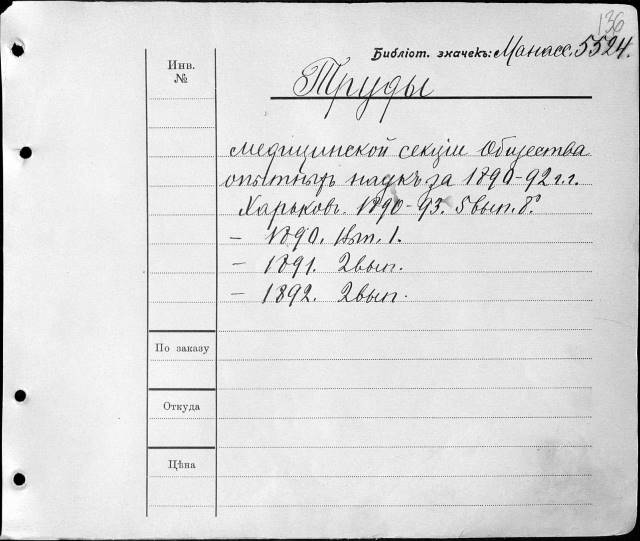 136
Библіот. значекъ: Манасс. 5524.
Инв.
№
Труды
медицинской секціи Общества
опытныхъ наукъ за 1890-92 г.г.
Харьковъ. 1890-93. 5 вып. 8°.
— 1890. Вып. 1.
— 1891. 2 вып.
— 1892. 2 вып.
По заказу
Откуда
Цѣна